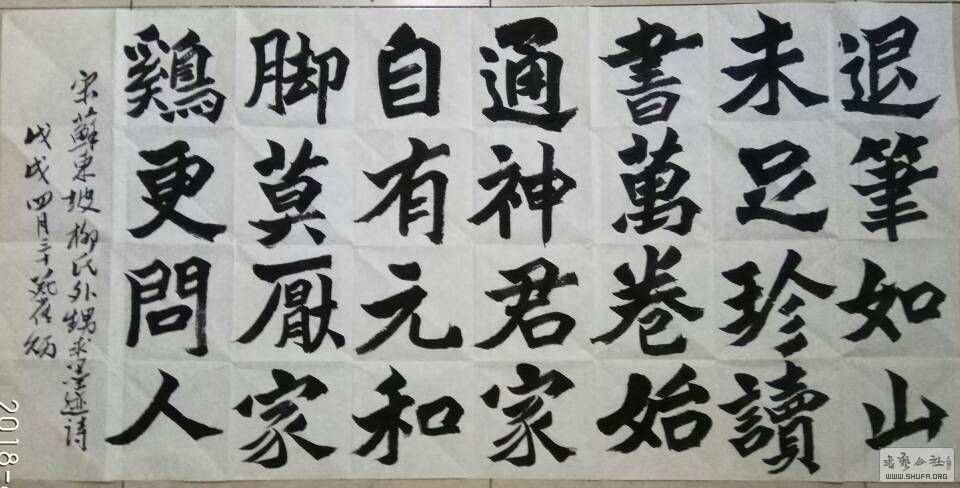 退筆如山
未足珍讀
書萬卷始
通神君家
自有元和
脚莫厭家
鷄更問人
宋蘇東坡柳氏外甥求筆迹詩
戊戌四月三十
2018-
WWW.SHUFA.ORG